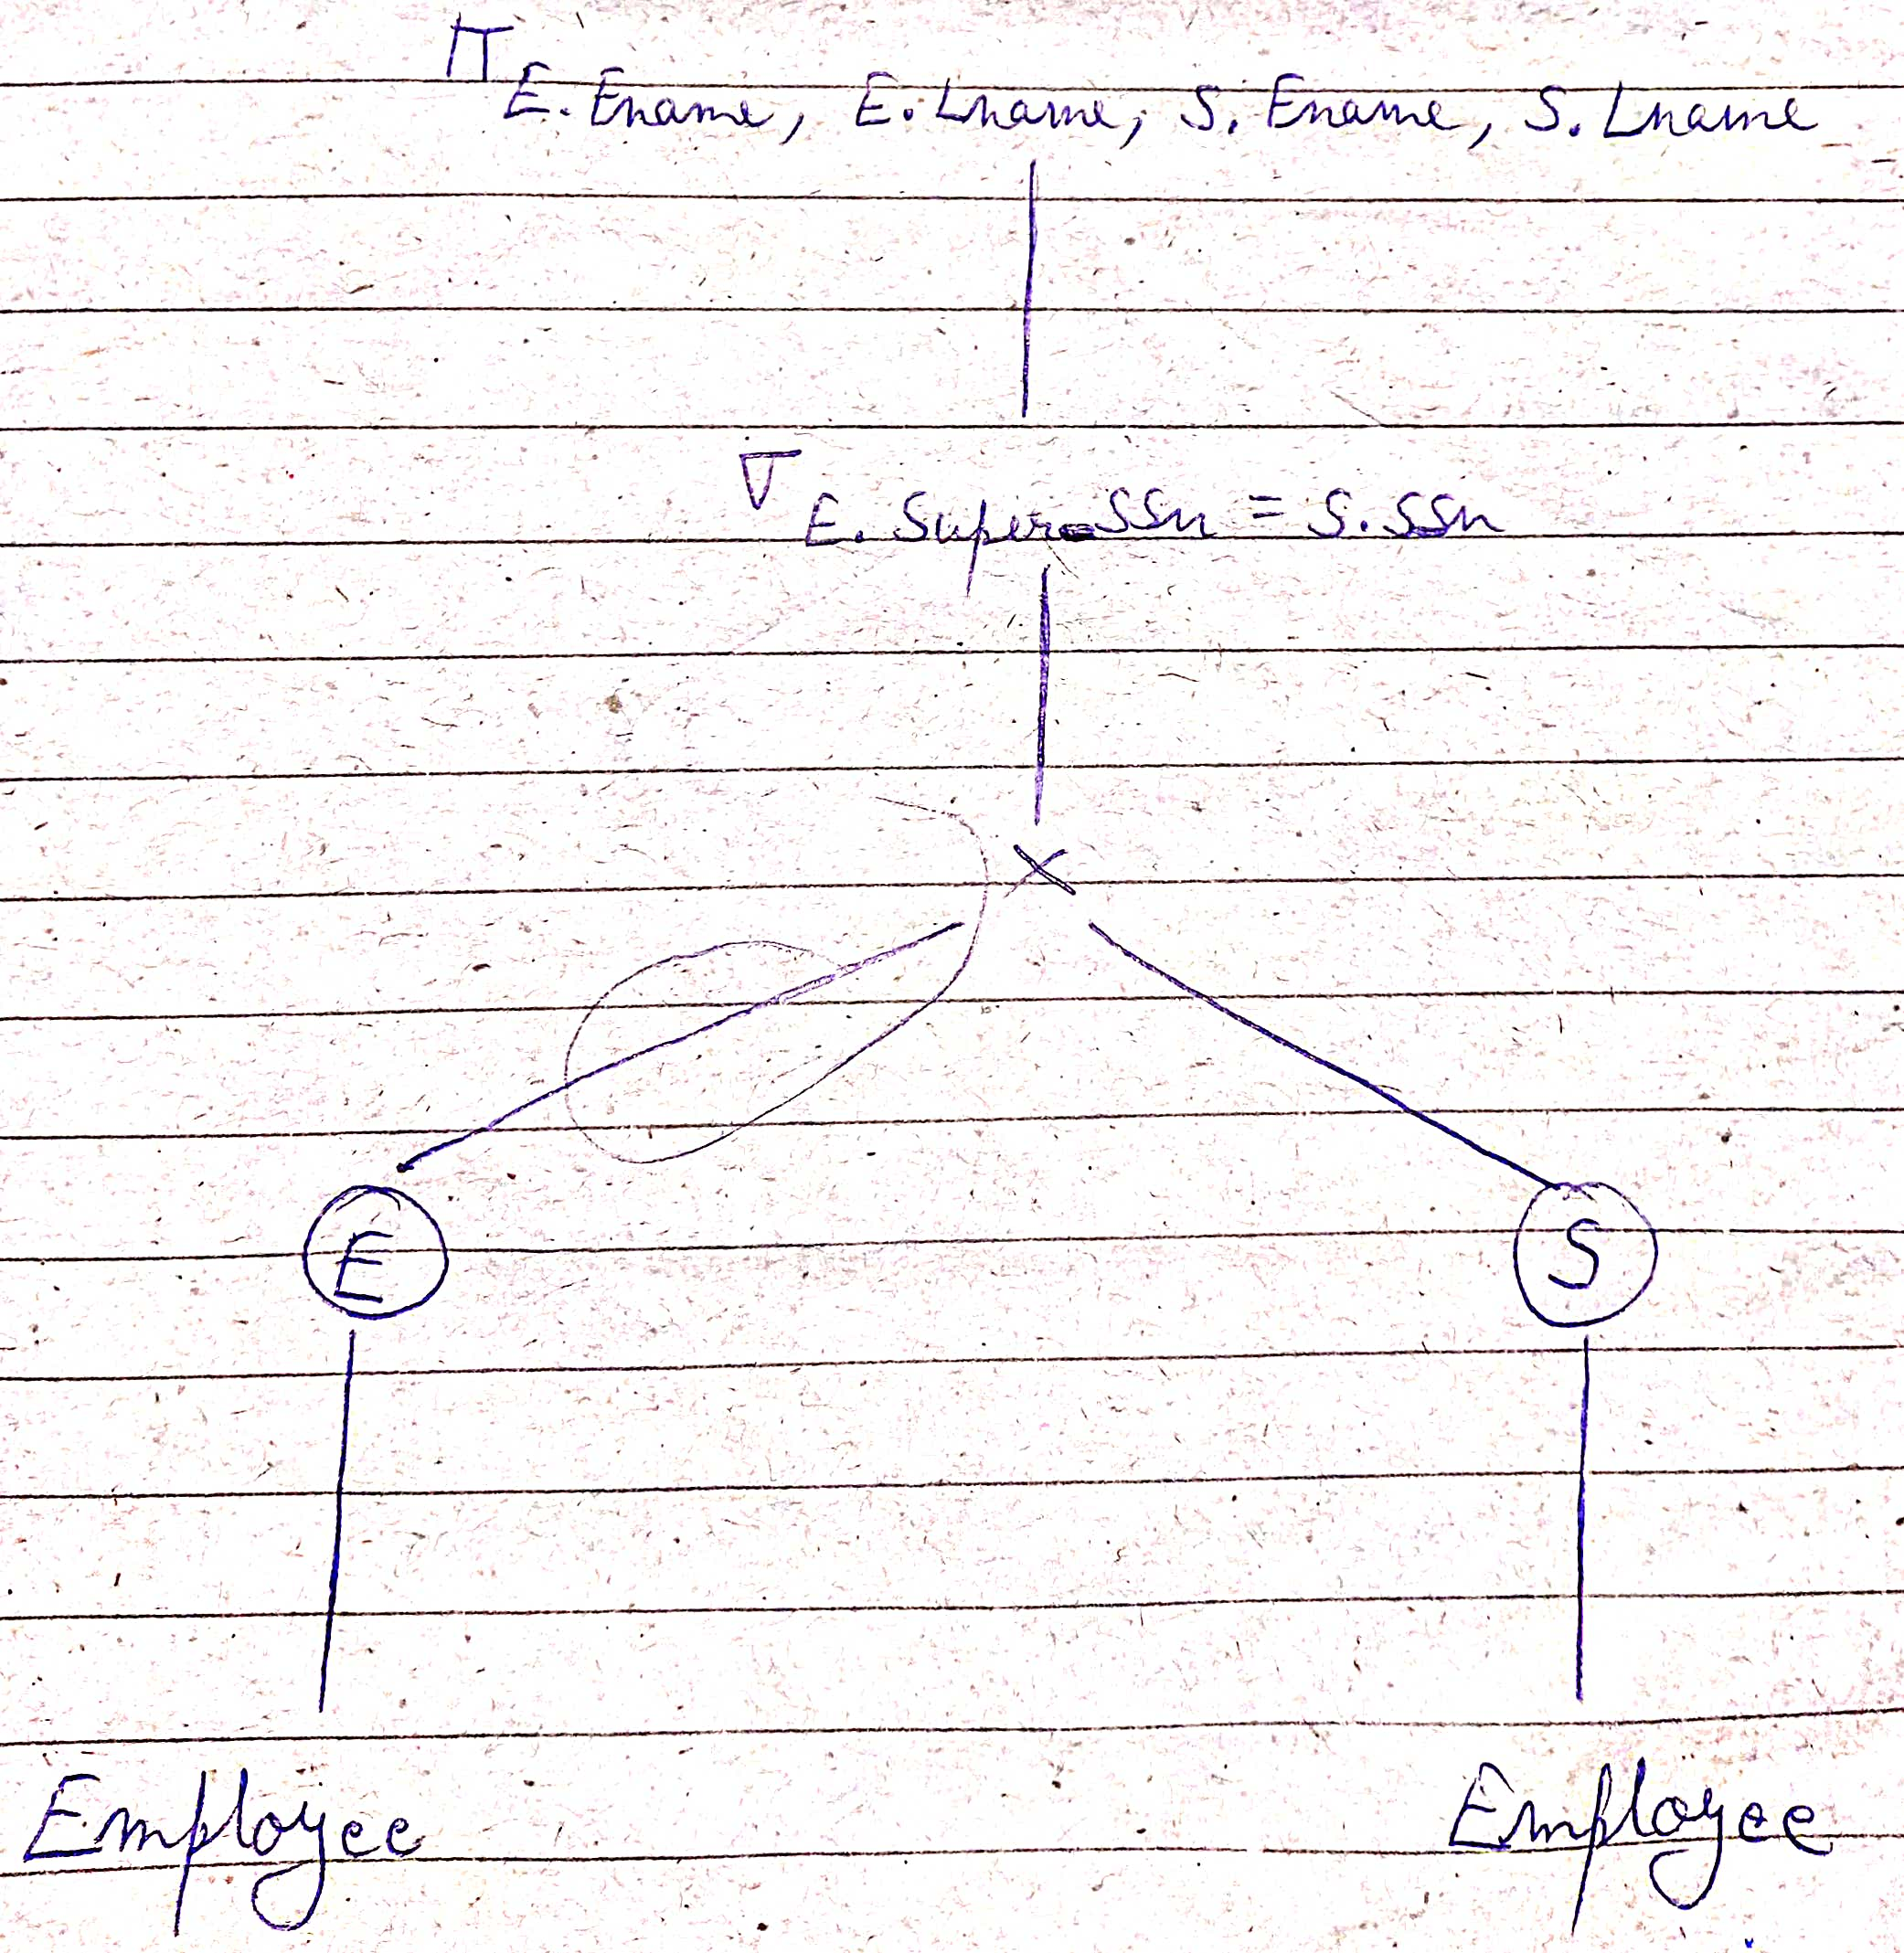 π E. Ename, E. Lname, S. Ename, S. Lname
σ E. Super_SSn = S.SSn
×
E S
Employee Employee